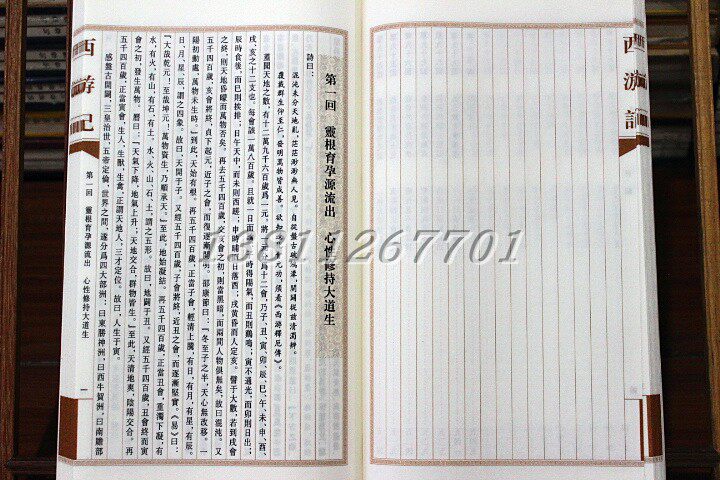 西游記
第一回 靈根育孕源流出 心性修持大道生
詩曰：
混沌未分天地亂，茫茫渺渺無人見。自從盤古破鴻濛，開闢從茲清濁辨。
覆載群生仰至仁，發明萬物皆成善。欲知造化會元功，須看《西游釋厄傳》。
蓋聞天地之數，有十二萬九千六百歲爲一元。將一元分爲十二會，乃子、丑、寅、卯、辰、巳、午、未、申、酉、
戌、亥之十二支也。每會該一萬八百歲。且就一日而論：子時得陽氣，而丑則鷄鳴；寅不通光，而卯則日出；
辰時食後，而巳則挨排；日午天中，而未則西蹉；申時晡而日落酉；戌黃昏而人定亥。譬于大數，若到戌會
之終，則天地昏曚而萬物否矣。再去五千四百歲，交亥會之初，則當黑暗，而兩間人物俱無矣，故曰混沌。又
五千四百歲，亥會將終，貞下起元，近子之會，而復逐漸開明。邵康節曰：「冬至子之半，天心無改移。一
陽初動處，萬物未生時。」到此，天始有根。再五千四百歲，正當子會，輕清上騰，有日，有月，有星，有辰。
日、月、星、辰，謂之四象。故曰，天開于子。又經五千四百歲，子會將終，近丑之會，而逐漸堅實。《易》曰：
「大哉乾元！至哉坤元！萬物資生，乃順承天。」至此，地始凝結。再五千四百歲，正當丑會，重濁下凝，有
水，有火，有山，有石，有土。水、火、山、石、土，謂之五形。故曰，地闢于丑。又經五千四百歲，丑會終而寅
會之初，發生萬物。曆曰：「天氣下降，地氣上升；天地交合，群物皆生。」至此，天清地爽，陰陽交合。再
五千四百歲，正當寅會，生人，生獸，生禽，正謂天地人，三才定位。故曰，人生于寅。
感盤古開闢，三皇治世，五帝定倫，世界之間，遂分爲四大部洲：曰東勝神洲，曰西牛賀洲，曰南贍部
西游記
第一回 靈根育孕源流出 心性修持大道生
一
13811267701